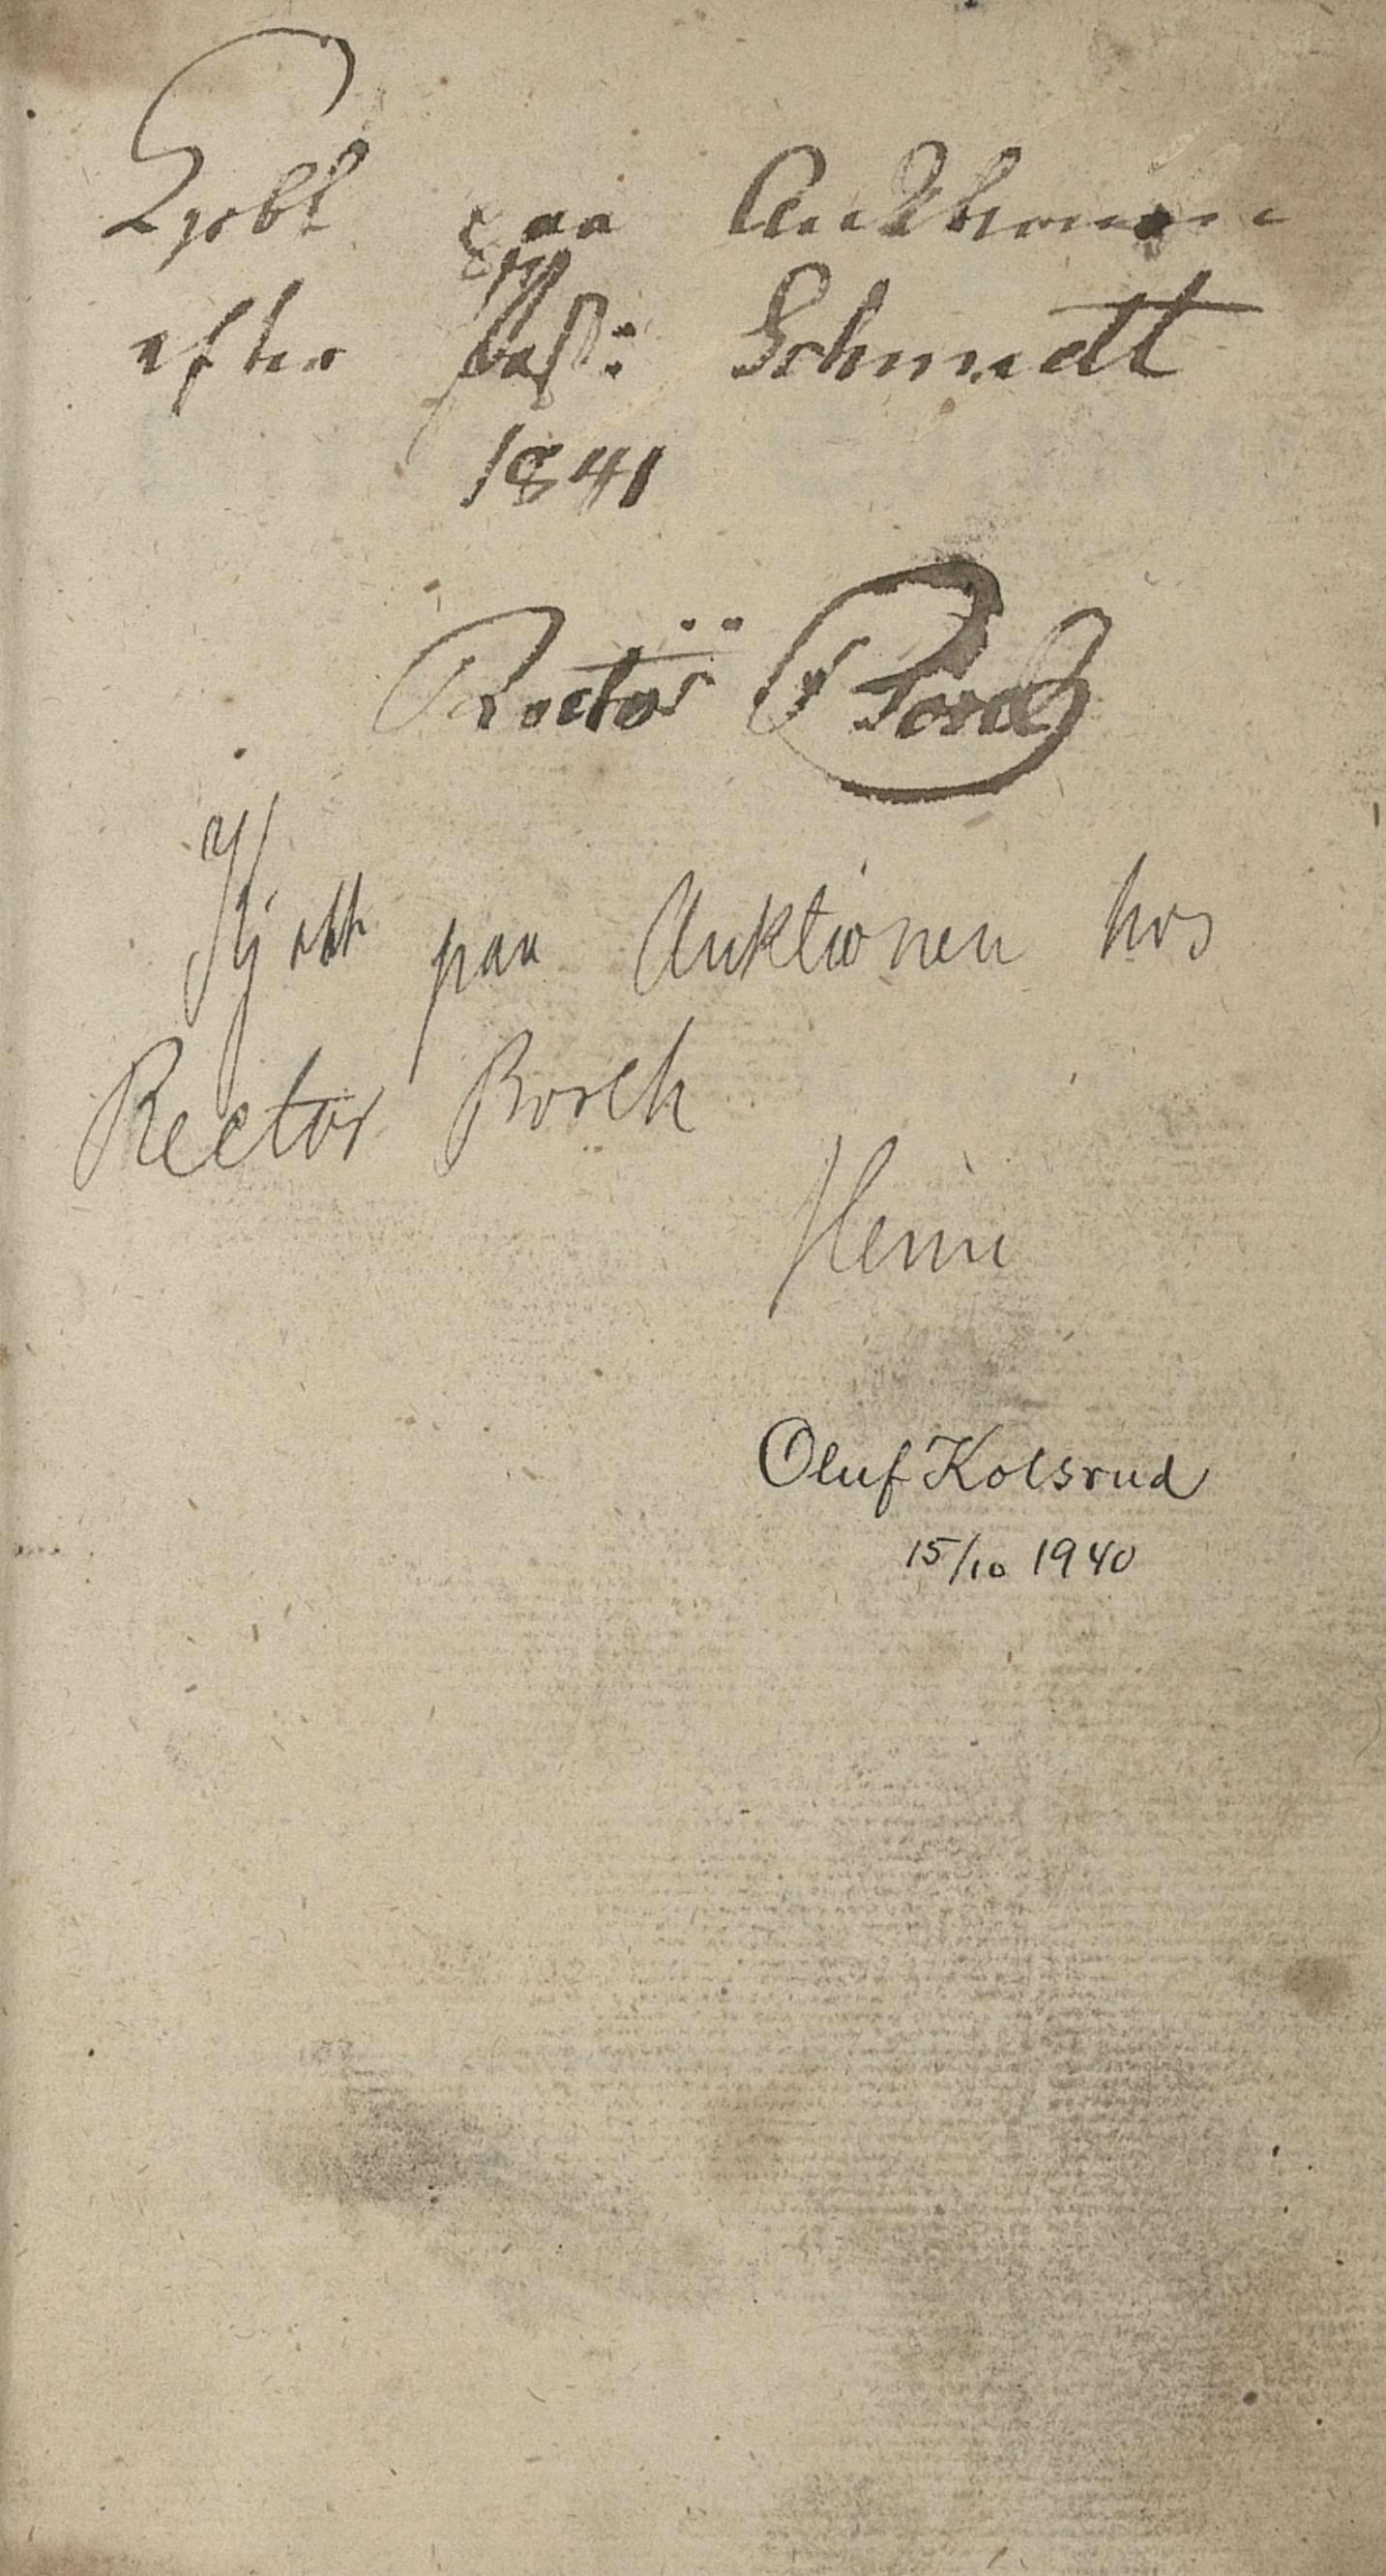 Kjøbt paa Auktionen
efter Past: Schmidt
1841
Rector Borch
Kjøbt paa Auktionen hos
Rector Borch
Oluf Kolsrud
15/10 1940